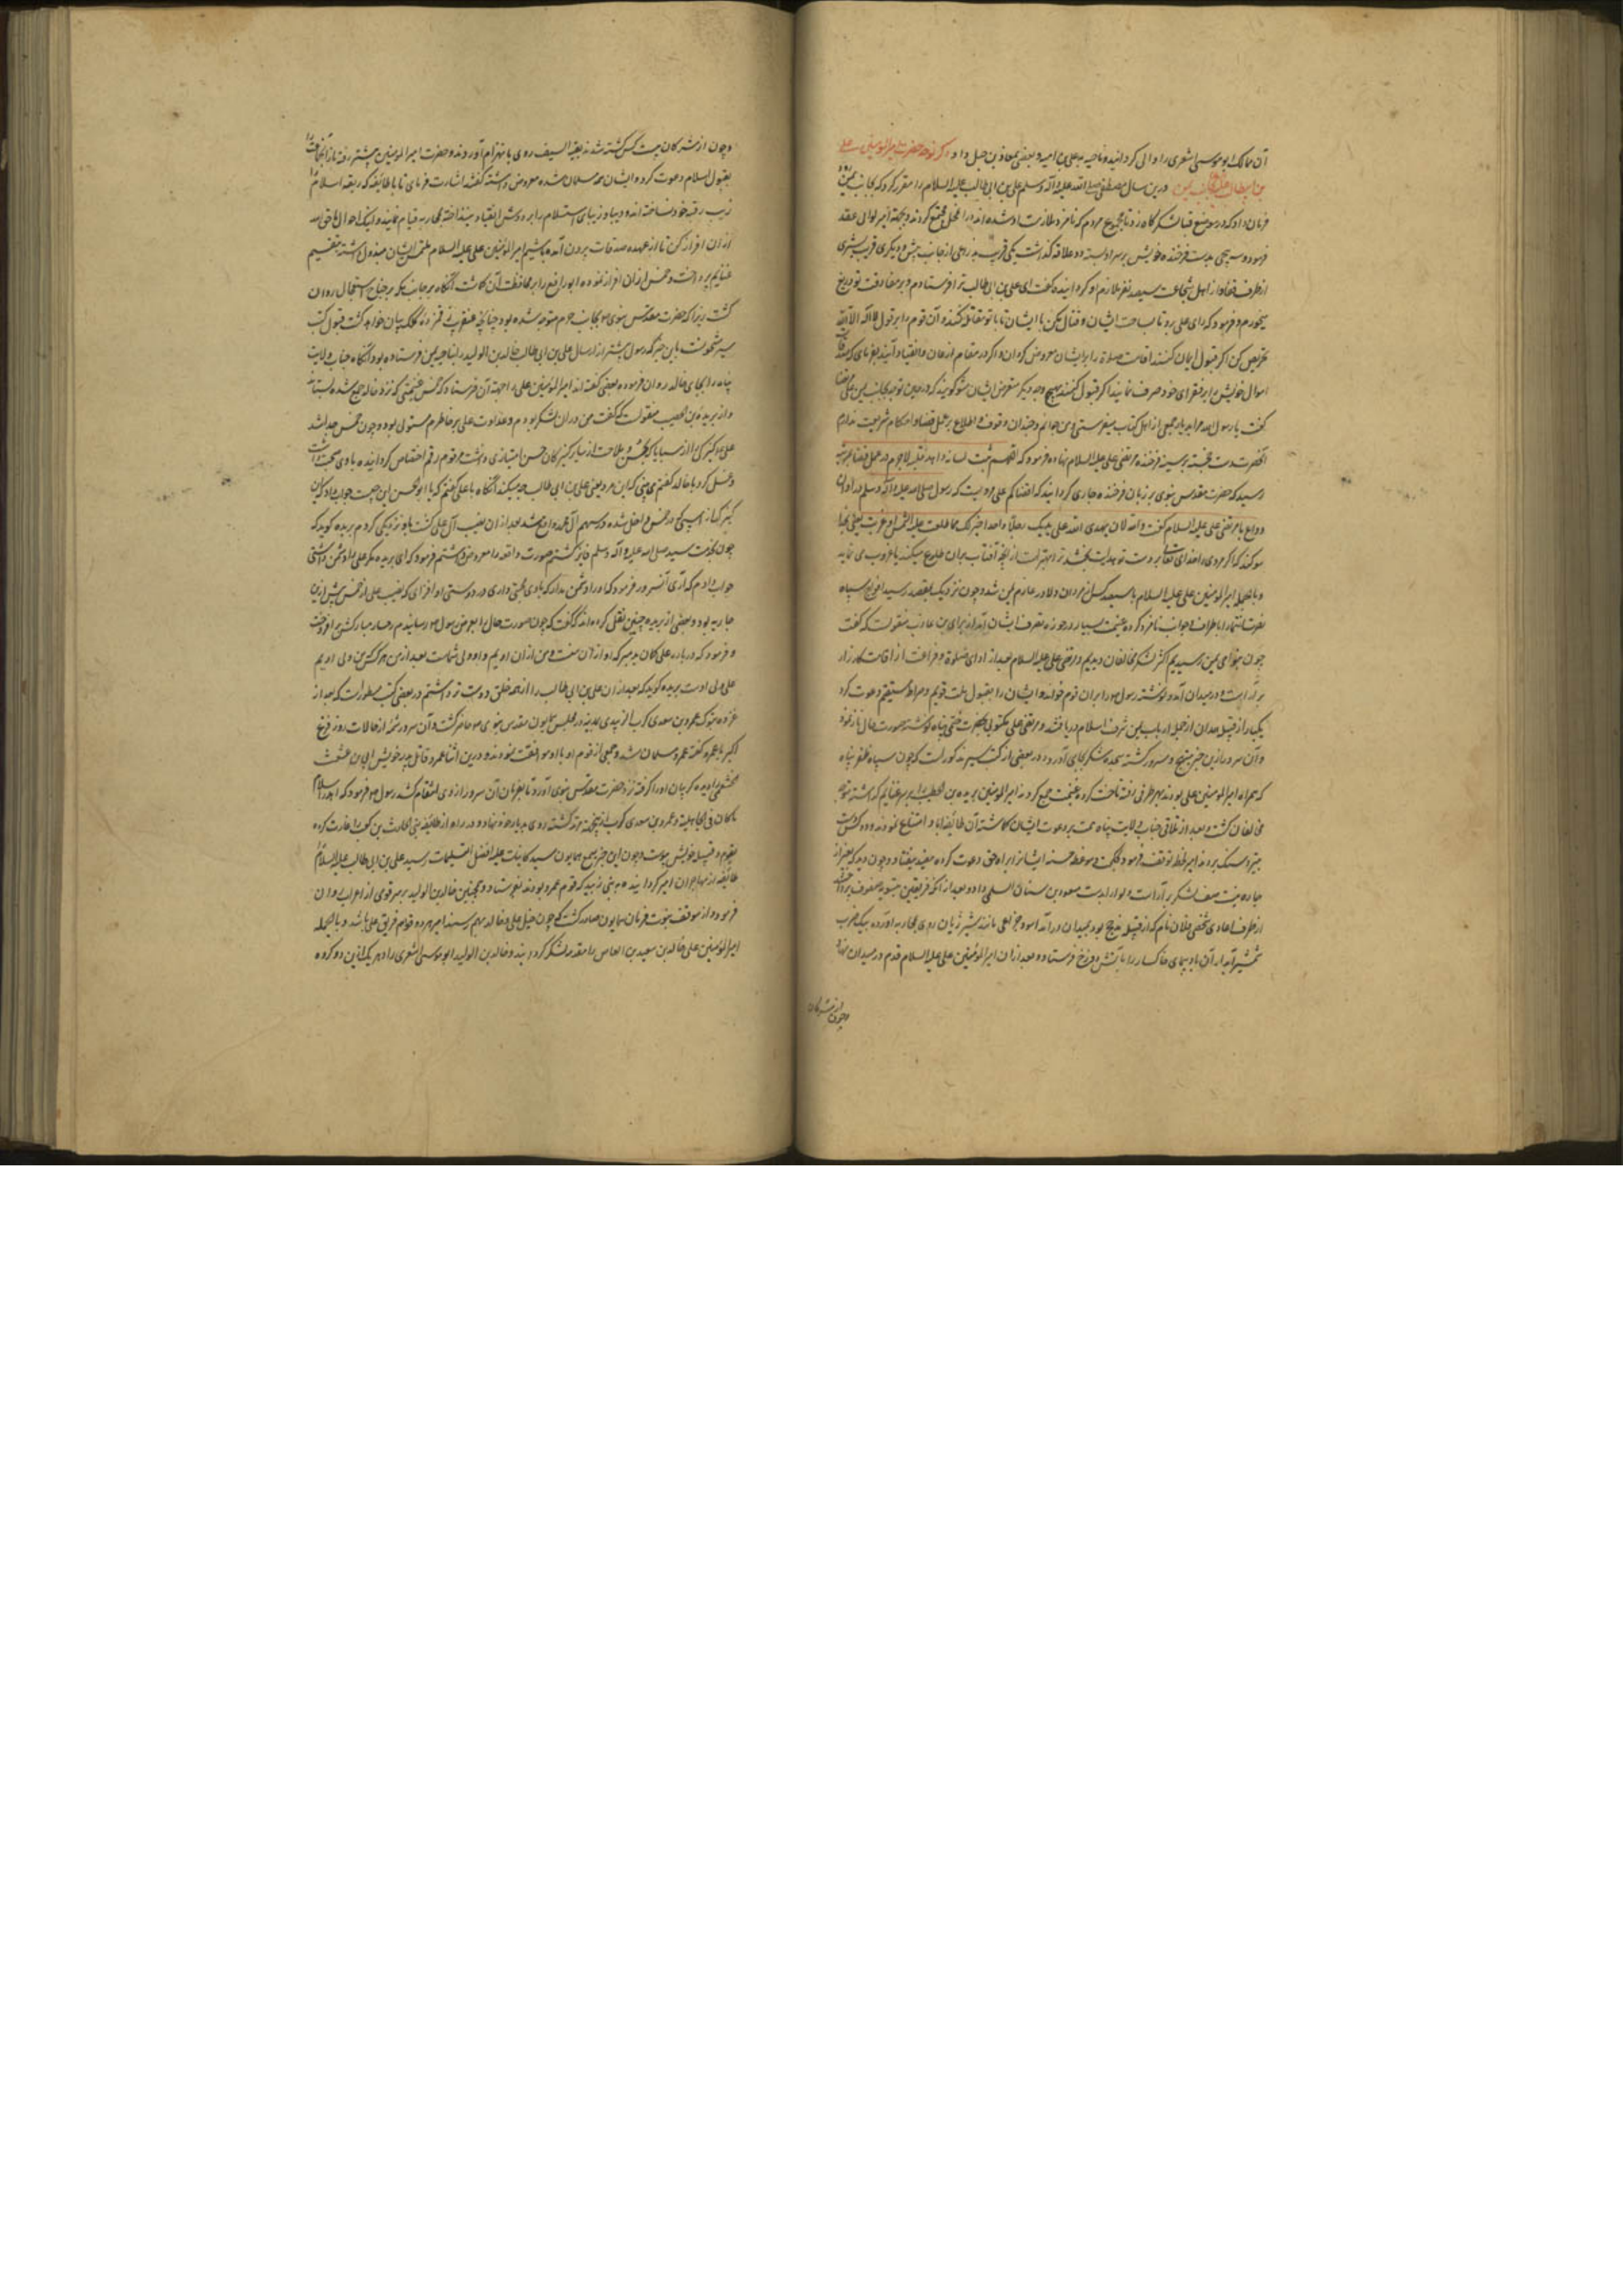 آن ممالک ابو موسی اشعری را والی گردانیده و ناحیه به یعلی بن امیه و بعضی بمعاذ بن جبل داد ذکر توجه حضرت امیر المومنین علی
بن ابیطالب بجانب یمن درین سال مصطفی صلی الله علیه و آله وسلم علی بن ابی طالب علیه السلام را مقرر کرد که بجانب یمن رود
فرمان داد که در موضع قبا لشکرگاه زد تا مجموع مردم که نامزد ملازمت او شده اند در آن محل مجتمع گردند و بجهة امیر لوائی عقد
فرمود و بدست فرخنده خویش بر سر او بست دو علاقه گذاشت یکی قریب بذراعی از جانب پیش و دیگری قریب بشبری
از طرف قفا و از اهل شجاعت سیصد نفر ملازم او گردانیده گفت ای علی بن ابی طالب ترا فرستادم و بر مفارقت تو دریغ
میخورم و فرمود که ای علی برو تا بساحت ایشان و قتال مکن با ایشان تا با تو مقاتله کنند و آن قوم را بر قول لا اله الا الله
تحریص کن اگر قبول ایمان کنند اقامت صلوة را بر ایشان معروض گردان و اگر در مقام اذعان و انقیاد آیند بفرمای که صدقات
اموال خویش را بر فقرای خود صرف نمایند اگر قبول کنند بهیچ وجه دیگر متعرض ایشان مشو گویند که در حین توجه بجانب یمن علی مرتضی
گفت یا رسول الله مرا بدیار جمعی از اهل کتاب میفرستی و من جوانم و چندان وقوف و اطلاع بر عمل قضا و احکام شریعت ندارم
آنحضرت دست خجسته بر سینه فرخنده مرتضی علی علیه السلام نهاده فرمود که اللهم ثبت لسانه و اهد قلبه لاجرم در عمل قضا بمرتبه
رسید که حضرت مقدس نبوی بر زبان فرخنده جاری گردانید که اقضاکم علی مرویست که رسول صلی الله علیه و آله وسلم در اوان
وداع با مرتضی علی علیه السلام گفت والله لان یهدی الله علی یدیک رجلا واحدا خیر لک مما طلعت علیه الشمس او غربت یعنی بخدا
سوگند که اگر مردی واحد ای تعالی بر دست تو هدایت بخشد ترا بهتر است از آنچه آفتاب بران طلوع میکند یا غروب می نماید
و بالجمله امیر المومنین علی علیه السلام با سیصد کس از مردان دلاور عازم یمن شد و چون نزدیک بمقصد رسید افواج سپاه
نصرت انتما را باطراف و جوانب نامزد کرده غنیمت بسیار در حوزه تصرف ایشان آمد از براء بن عازب منقولست که گفت
چون بنواحی یمن رسیدیم اکثر لشکر مخالفان دیدیم و مرتضی علی علیه السلام بعد از ادای صلوة و فراغت از اقامت کارزار
برآراست و در میدان آمد و نوشته رسول را بران قوم خوانده ایشان را بقبول ملت قویم و صراط مستقیم دعوت کرد
یکبار از قبیله همدان از جمله ارباب یمن شرف اسلام دریافتند و مرتضی علی مکتوبی بحضرت ختمی پناه نوشته صورت حال باز نمود
و آن سرور ازین خبر مبتهج و مسرور گشته سجده شکر بجای آورد و در بعضی از کتب سیر مذکورست که چون سپاه ظفر پناه
که همراه امیر المومنین علی بودند بهر طرفی رفته تاخت کرده غنیمت جمع کردند امیر المومنین بریده بن الحصیب را بر سر غنایم گذاشته متوجه
مخالفان گشت و بعد از تلاقی جناب ولایت پناه همت بر دعوت ایشان گماشته آن طائفه ابا و امتناع نمودند و دست
بتیر و سنگ بردند امیر لحظه توقف فرمود و بحکمت و موعظه حسنه ایشانرا براه حق دعوت کرده مفید نیفتاد و چون دید که بغیر از
چاره نیست صف لشکر بیاراست و لوا را بدست مسعود بن سنان السلمی داد و بعد از آنکه فریقین بتسویه صفوف پرداختند
از طرف اعادی شخصی فلان نام که از قبیله مذحج بود بمیدان درآمد اسود خزاعی مانند شیر ژیان روی بمحاربه آورده بیک ضرب
شمشیر آبدار آن باد پیمای خاکسار را بآتش دوزخ فرستاد و بعد از آن امیر المومنین علی علیه السلام قدم در میدان نهاد
و چون از مشرکان
و چون از مشرکان بیست کس کشته شدند بقیة السیف روی بانهزام آوردند و حضرت امیر المومنین پیشتر رفته باز آن جماعت را
بقبول اسلام دعوت کرد و ایشان همه مسلمان شده معروض داشته گفتند اشارت فرمای تا با طائفه که ربقه اسلام را
زیب رقبه خود نساخته اند و دیبا و زیبای استسلام را بر دوش انقیاد نینداخته بمحاربه قیام نمایند و اینک اموال ما حق الله
از آن افراز کن تا از عهده صدقات بیرون آمده باشیم امیر المومنین علی علیه السلام ملتمس ایشان مبذول داشته بتقسیم
غنایم پرداخت و خمس از آن افراز نموده ابو رافع را بر محافظت آن گماشت آنگاه بر جانب مکه بر جناح استعجال روان
گشت زیرا که حضرت مقدس نبوی بجانب حرم متوجه شده بود چنانچه عنقریب رقمزده کلک بیان خواهد گشت قبول کتب
سیر مشحونست باین خبر که رسول پیشتر از ارسال علی بن ابی طالب خالد بن الولید را بناحیه یمن فرستاده بود آنگاه جناب ولایت
پناه را بجای خالد روان فرموده بعضی گفته اند امیر المومنین علی را جهت آن فرستاد که خمس غنیمتی که نزد خالد جمع شده بستاند
و از بریده بن الحصیب منقولست که گفت من در ان لشکر بودم و عداوت علی بر خاطرم مستولی بود و چون خمس جدا شد
علی کنیزکی را از سبایا که بحسن و ملاحت از سایر کنیزکان حسن امتیازی داشت مرقوم رقم اختصاص گردانیده با وی صحبت داشت
و غسل کرد با خالد گفتم می بینی که این مرد یعنی علی بن ابی طالب چه میکند آنگاه با علی گفتم که یا ابو الحسن این چیست جواب داد که این
کنیزک از سبی که در خمس داخل شده در سهم آل محمد واقع شد بعد از ان نصیب آل علی گشت با او نزدیکی کردم بریده گوید که
چون بخدمت سید صلی الله علیه و آله وسلم فایز گشتم صورت واقعه را معروض داشتم فرمود که ای بریده مگر علی را دشمن داشتی
جواب دادم که آری آنسرور فرمود که او را دشمن مدار که با وی محبتی داری در دوستی او افزای که نصیب علی از خمس بیش ازین
جاریه بود و بعضی از بریده چنین نقل کرده اند که گفت که چون صورت حال را بعرض رسول رسانیدم رخسار مبارکش برافروخت
و فرمود که درباره علی گمان بد مبر که او از آن منست و من از آن اویم و او ولی شماست بعد ازین هر که من ولی اویم
علی ولی اوست بریده گوید که بعد از ان علی بن ابی طالب را از همه خلق دوست تر داشتم در بعضی کتب مسطورست که بعد از
غزوه تبوک عمرو بن معدی کرب الزبیدی بمدینه در مجلس همایون مقدس نبوی حاضر گشت و آن سرور شمه از حالات روز فزع
اکبر با عمرو گفته عمرو مسلمان شد و جمعی از قوم او با او موافقت نمودند و درین اثنا عمرو قاتل پدر خویش ابی بن عثعث
خثعمی را دیده گریبان او را گرفته نزد حضرت مقدس نبوی آورد تا بفرمان آن سرور از وی انتقام کشد رسول فرمود که اهدر الاسلام
ما کان فی الجاهلیة و عمرو بن معدی کرب ازینجهت مرتد گشته روی بدیار خود نهاد و در راه از طائفه بنی الحارث بن کعب را غارت کرده
بقوم و قبیله خویش پیوست و چون این خبر بسمع همایون سید کاینات علیه افضل التسلیمات رسید علی بن ابی طالب علیه السلام را
طائفه از مهاجران امیر گردانیده به بنی زبید که قوم عمرو بودند بفرستاد و همچنین خالد بن الولید بر سر قومی از اعراب روان
فرمود و از موقف نبوت فرمان همایون صادر گشت که چون خیل علی و خالد بهم رسند امیر هر دو قوم فریق علی باشد و بالجمله
امیر المومنین علی خالد بن سعید بن العاص را مقدمه لشکر گردانید و خالد بن الولید ابو موسی اشعری را و هر یک ازین دو گروه